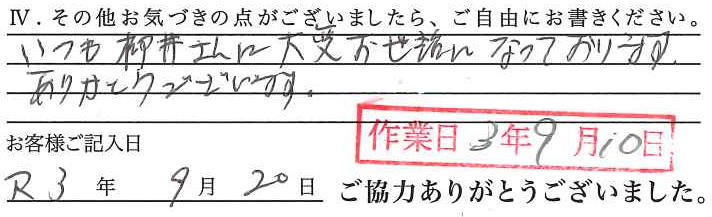 Ⅳ.その他お気づきの点がございましたら、ご自由にお書きください。
いつも柳井さんに大変お世話になっております。
ありがとうございます。
作業日 3年9月10日
お客様ご記入日
R3年 9月20日 ご協力ありがとうございました。